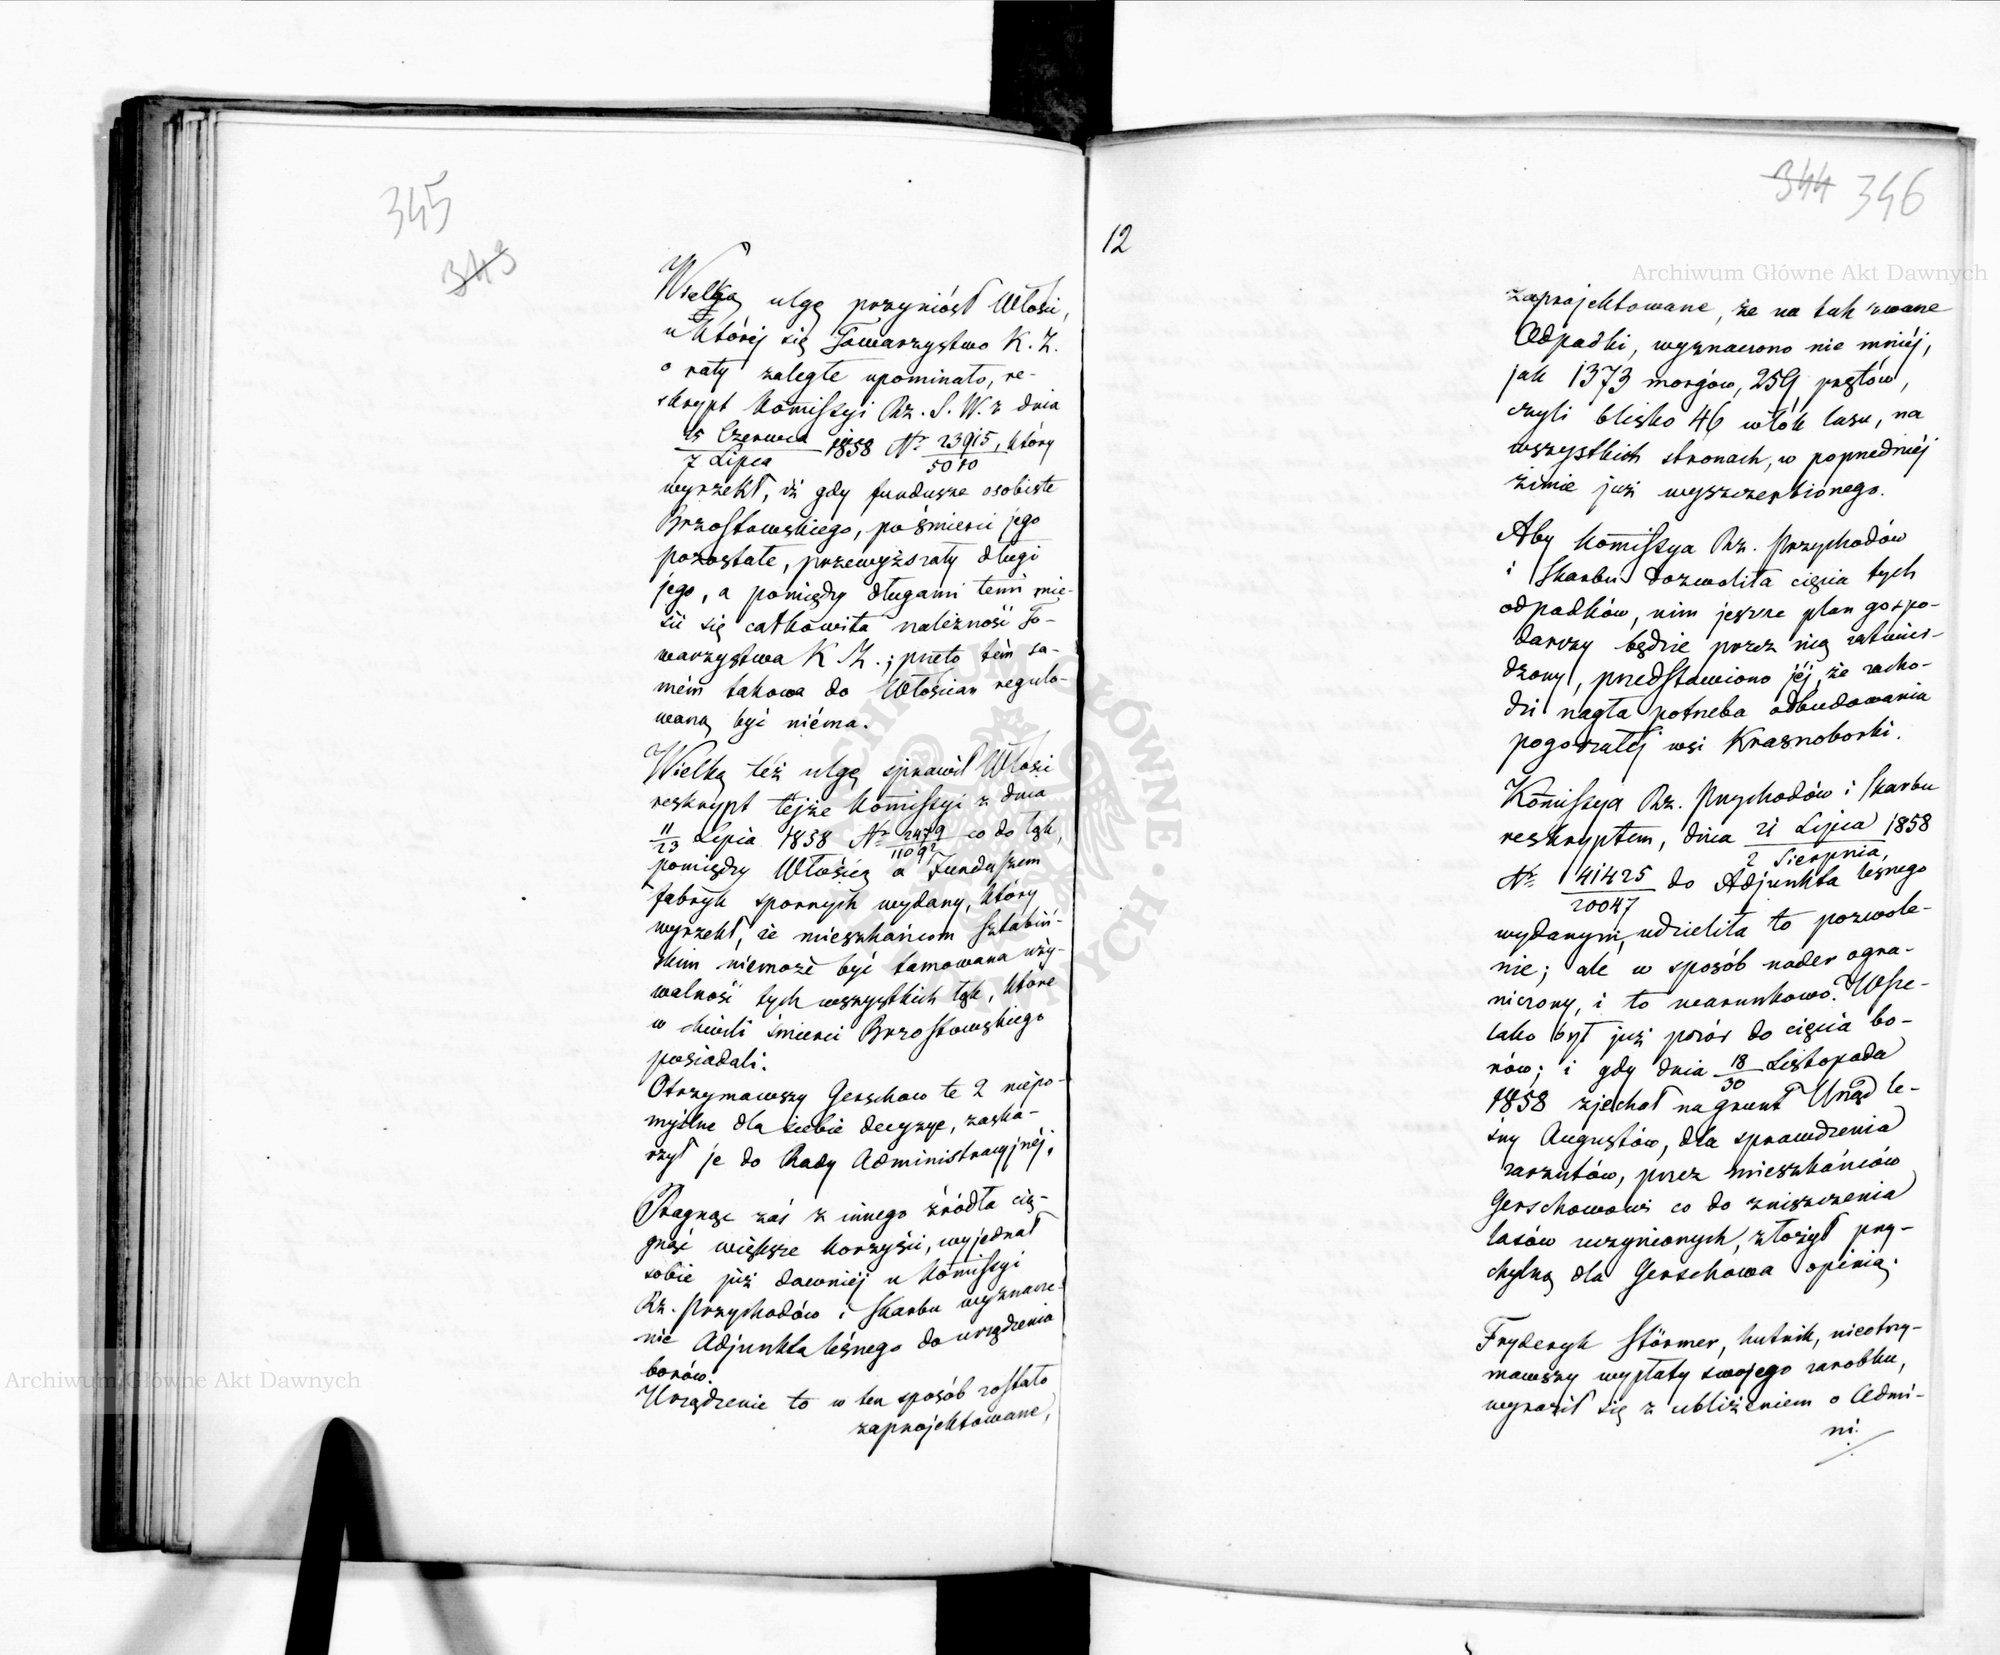 345
343
Wielką ulgę przyniósł Włości,
u której się Towarzystwo K. Z.
o raty zaległe upominało, re-
skrypt Kommissyi Rz. S. W. z dnia
25 Czerwca / 7 Lipca 1858 Nr 23915 / 5010, który
wyrzekł, iż gdy fundusze osobiste
Brzostowskiego, po śmierci jego
pozostałe, przewyższały długi
jego, a pomiędzy długami temi mie-
ści się całkowita należność To-
warzystwa K. Z.; przeto tém sa-
mém takowa do Włościan regulo-
waną być niéma.
Wielką też ulgę sprawił Włości
reskrypt tejże Kommissyi z dnia
11/23 Lipca 1858 Nr 2479 / 11092 co do łąk,
pomiędzy Włością a Funduszem
fabryk spornych wydany, który
wyrzekł, że mieszkańcom Sztabiń-
skim niemoże być tamowana uży-
walność tych wszystkich łąk, które
w chwili śmierci Brzostowskiego
posiadali.
Otrzymawszy Gerschow te 2 niepo-
myślne dla siebie decyzye, zaska-
rżył je do Rady Administracyjnéj.
Pragnąc zaś z innego źródła cią-
gnąć większe korzyści, wyjednał
sobie już dawniéj u Kommissyi
Rz. Przychodów i Skarbu wyznacze-
nie Adjunkta leśnego do urządzenia
borów.
Urządzenie to w ten sposób zostało
zaprojektowane,
12
344 346
zaprojektowane, że na tak zwane
Odpadki, wyznaczono nie mniéj,
jak 1373 morgów, 259 prętów,
czyli blisko 46 włók lasu, na
wszystkich stronach, w poprzedniéj
zimie już wyszczerbionego.
Aby Kommissya Rz. Przychodów
i Skarbu dozwoliła cięcia tych
odpadków, nim jeszcze plan gospo-
darczy będzie przez nią zatwier-
dzony, przedstawiono jéj, że zacho-
dzi nagła potrzeba odbudowania
pogorzałéj wsi Krasnoborki.
Kommissya Rz. Przychodów i Skarbu
reskryptem, dnia 21 Lipca / 2 Sierpnia 1858
Nr 41425 / 20047 do Adjunkta leśnego
wydanym, udzieliła to pozwole-
nie; ale w sposób nader ogra-
niczony, i to warunkowo. Wsze-
lako był już pozór do cięcia bo-
rów; i gdy dnia 18/30 Listopada
1858 zjechał na grunt Urząd le-
śny Augustów, dla sprawdzenia
zarzutów, przez mieszkańców
Gerschowowi co do zniszczenia
lasów uczynionych, złożył przy-
chylną dla Gerschowa opinią.
Fryderyk Störmer, hutnik, nieotrzy-
mawszy wypłaty swojego zarobku,
wyraził się z ubliżeniem o Admi-
ni
Archiwum Główne Akt Dawnych
Archiwum Główne Akt Dawnych